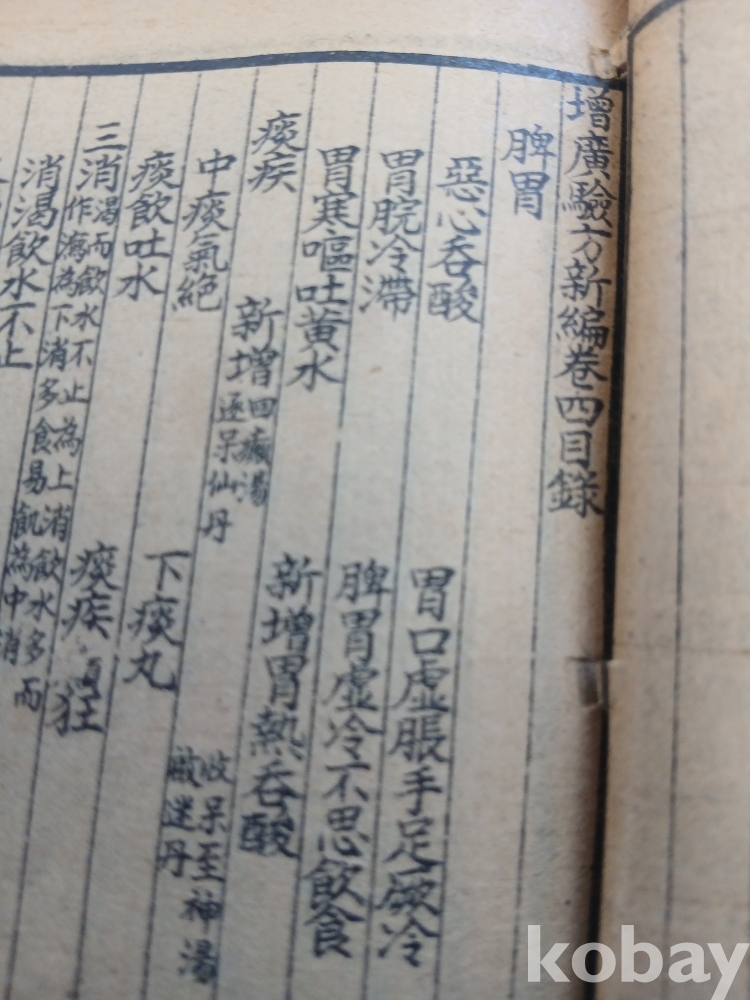 增廣驗方新編卷四目錄
脾胃
惡心吞酸 胃口虛脹手足厥冷
胃脘冷滯 脾胃虛冷不思飲食
胃寒嘔吐黃水 新增胃熱吞酸
痰疾 新增 回癲湯 還呆仙丹 收呆至神湯 啟迷丹
中痰氣絕 下痰丸
痰飲吐水 痰疾 狂
三消 渴而飲水不止為上消飲水多而
作瀉為下消多食易飢為中消
消渴飲水不止
kobay